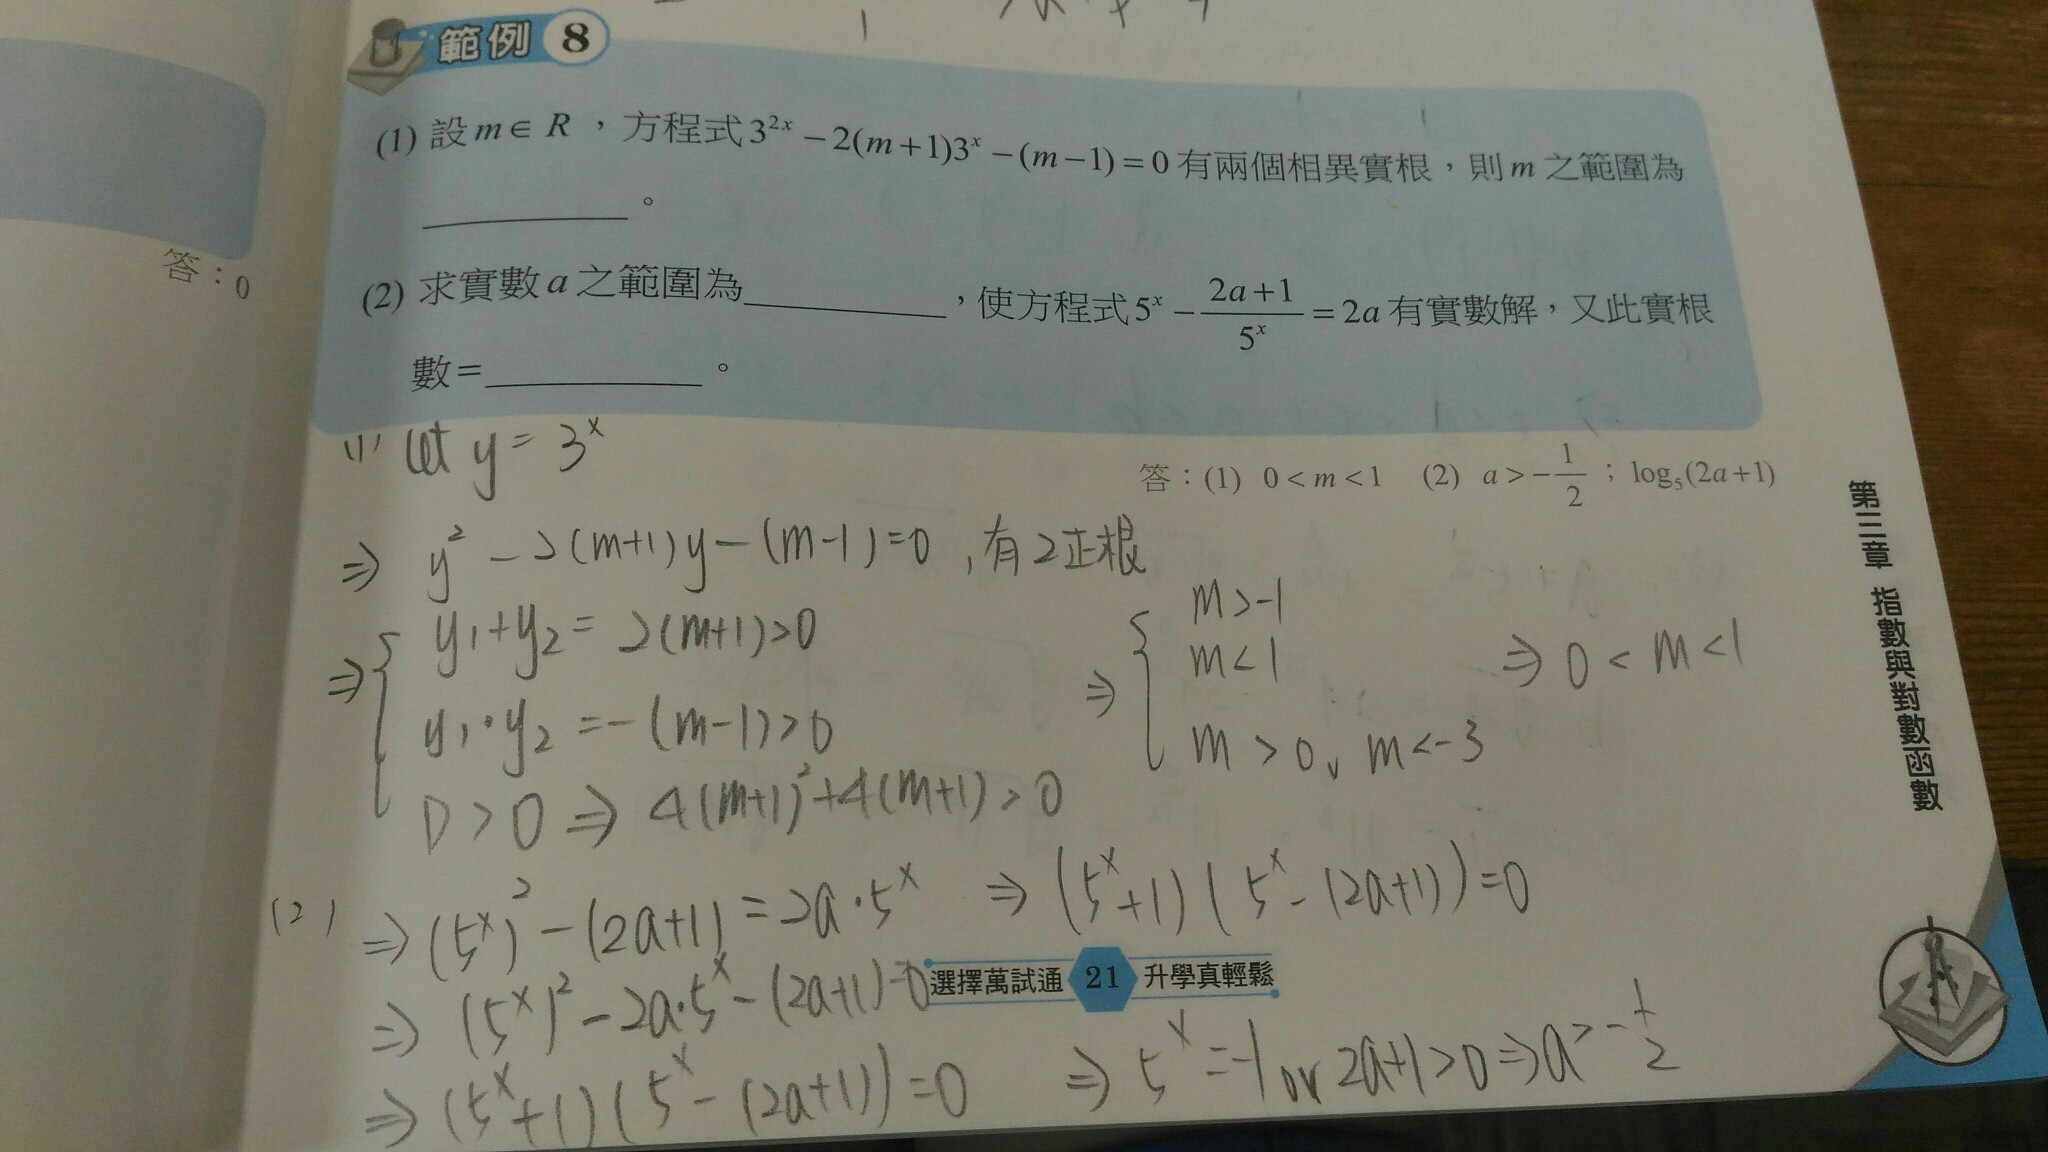 範例 8
(1) 設 m ∈ R ，方程式 3^{2x} − 2(m+1)3^x − (m−1) = 0 有兩個相異實根，則 m 之範圍為
________。
答：0
(2) 求實數 a 之範圍為________，使方程式 5^x − \frac{2a+1}{5^x} = 2a 有實數解，又此實根
數＝________。
答：(1) 0 < m < 1 (2) a > −\frac{1}{2}；log_5(2a+1)
(1) let y = 3^x
⇒ y^2 − 2(m+1)y − (m−1) = 0 , 有2正根
⇒ { y1 + y2 = 2(m+1) > 0
y1 · y2 = −(m−1) > 0
D > 0 ⇒ 4(m+1)^2 + 4(m+1) > 0
⇒ { m > −1
m < 1
m > 0 , m < −3
⇒ 0 < m < 1
(2) ⇒ (5^x)^2 − (2a+1) = 2a · 5^x ⇒ (5^x + 1)(5^x − (2a+1)) = 0
⇒ (5^x)^2 − 2a · 5^x − (2a+1) = 0
⇒ (5^x + 1)(5^x − (2a+1)) = 0 ⇒ 5^x = −1 or 2a+1 > 0 ⇒ a > −\frac{1}{2}
選擇萬試通 21 升學真輕鬆
第三章 指數與對數函數